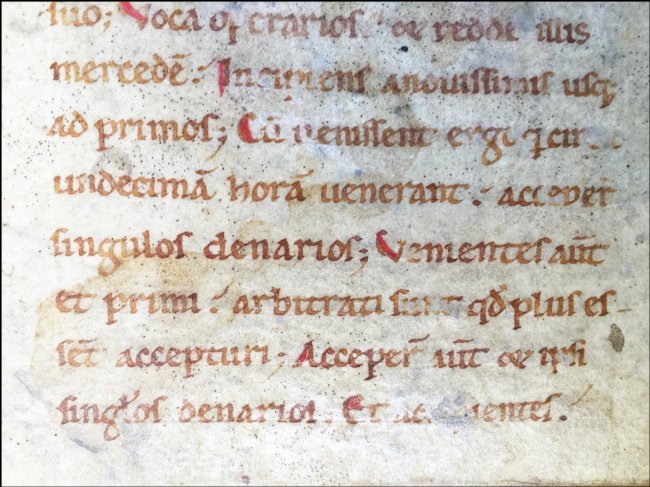 suo; Voca operarios et redde illis
mercedē. Incipiens anouissimis usq;
ad primos; Cū uenissent ergo q circ
undecimā horā uenerant. acceper̄
singulos denarios; Venientes aūt
et primi. arbitrati sunt qđ plus es-
sēt accepturi; Acceper̄ aūt et ipsi
singłos denarios, Et accipientes.